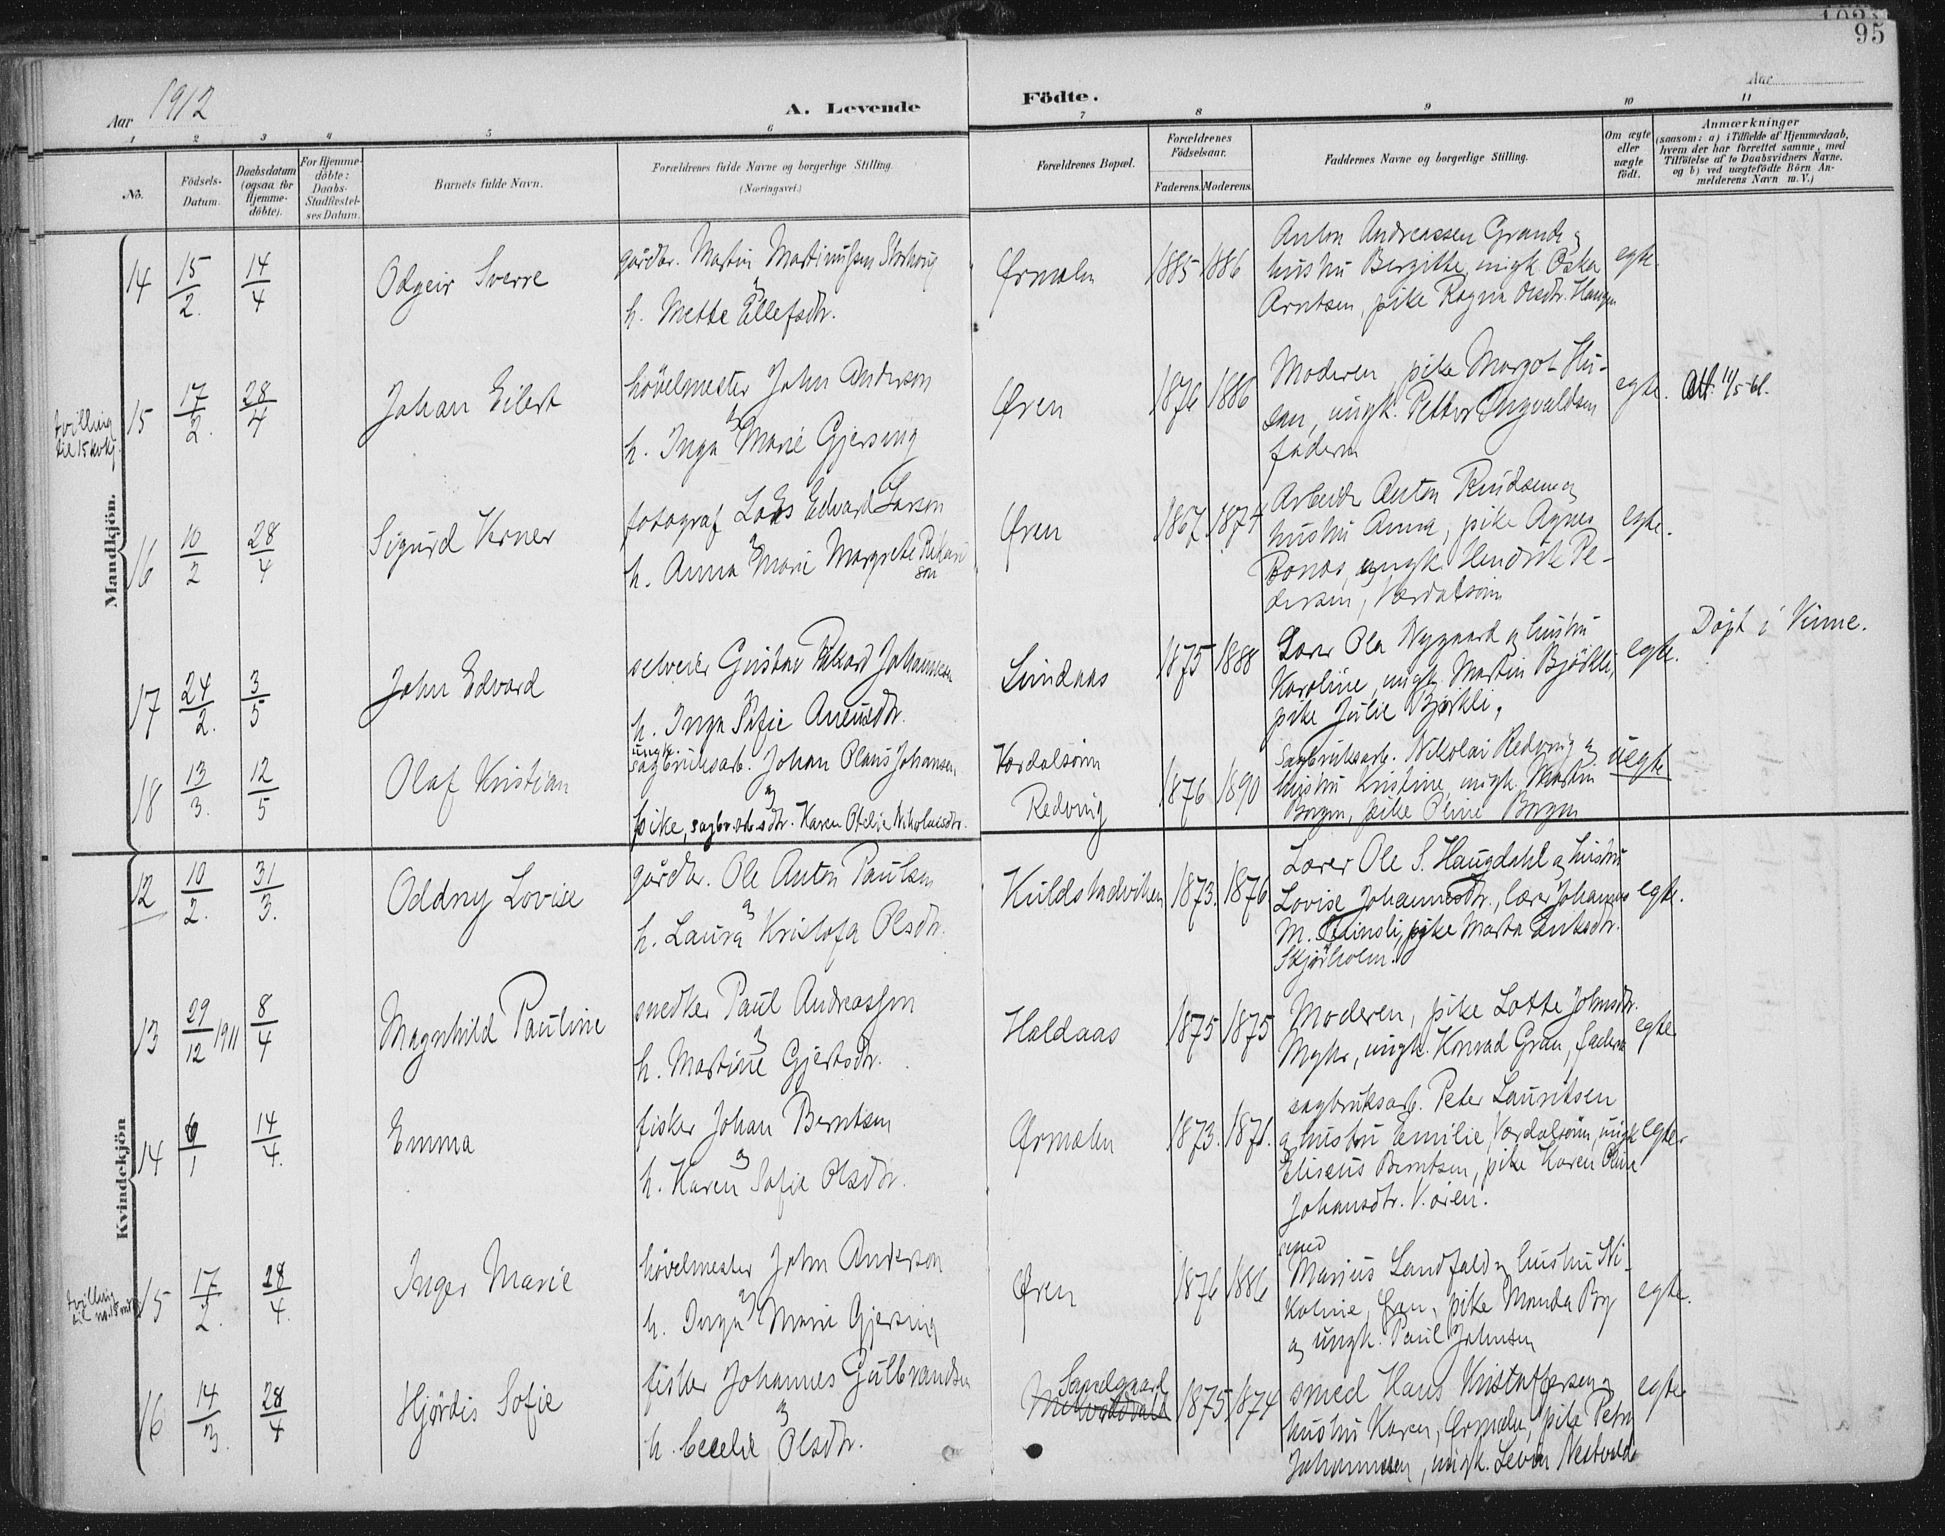 95
Aar 1912
A. Levende
Födte.
Aar
1 2 3 4 5 6 7 8 9 10 11
No.
Födsels-Datum.
Daabsdatum (ogsaa for Hjemme-döbte).
For Hjemme-döbte: Daabs-Stadfæstel-ses Datum.
Barnets fulde Navn.
Forældrenes fulde Navne og borgerlige Stilling. (Næringsvei.)
Forældrenes Bopæl.
Forældrenes Födselsaar.
Faderens. Moderens.
Faddernes Navne og borgerlige Stilling.
Om ægte eller uægte födt.
Anmærkninger
(saasom: a) i Tilfælde af Hjemmedaab,
hvem der har forrettet samme, med
Tilföielse af to Daabsvidners Navne,
og b) ved uægtefödte Börn An-
melderens Navn m. V.)
Mandkjön.
14 15/2. 14/4 Odgeir Sverre
gårdbr. Martin Martinussen
og
h. Mette Ellefsdtr.
Ørmelen 1885 1886
Anton Andreassen Grande og
hustru Bergitte, ungk. Oskar
Arntsen, pike Ragna Olsdtr. Haugen
egte.
tvilling
til 15 kvkj.
15 17/2. 28/4 Johan Eilert
hövelmester John Anderson
og
h. Inga Marie Gjersing
Øren 1876 1886
Moderen, pike Margot Hu-
san, ungk. Petter Ingvaldsen
faderen
egte. Att. 11/5-61.
16 10/2 28/4 Sigurd Verner
fotograf Edvard Larson
og
h. Anna Marie Margrete
Øren 1867 1874
Arbeider Anton
hustru Anna, pike Agnes
ungk. Hendrik Pe-
dersen, Værdalsøren
egte.
17 24/2. 3/5 John Edvard
selveier Gustav Rikard Johannesen
og
h. Inga Sofie
Lundaas 1875 1888
Lærer Ola Nygaard og hustru
Karoline, ungk. Martin Björkli,
pike Julie Björkli.
egte. Døpt i Vinne.
18 13/3. 12/5 Olaf Kristian
ungk.
sagbruksarb. Johan Olaus Johansen
og
pike, Karen Otelie Nikolaisdtr.
Værdalsøren
Redving
1876 1890
Sagbruksarb. Nikolai Redving og
hustru Kristine, ungk. Martin
Borgen, pike Oline Borgen
uegte
Kvindekjön
12 10/2. 31/3. Oddny Lovise
gårdbr. Ole Anton Paulsen
og
h. Laura Kristofa Olsdtr.
Kuldstadviken 1873. 1876
Lærer Ole S. Haugdahl og hustru
Lovise Johannesdtr., lærer Johannes
M. Minsli, pike Marta
Skjørholm.
egte.
13 29/12 1911 8/4 Magnhild Pauline
snedker Paul Andreassen
og
h. Martine Gjertsdtr.
Haldaas 1875 1875
Moderen, pike Lotte Johnsdtr.
Myhr, ungk. Konrad Gran, faderen
egte
14 6/1 14/4. Emma
fisker Johan Berntsen
og
h. Karen Sofie Olsdtr.
Ørmelen 1873. 1871.
sagbruksarb. Peter Lauritsen
og hustru Emilie, Værdalsøren, ungk.
Eliseus Berntsen, pike Karen Oline
Johansdtr. V.øren.
egte.
tvilling
til no. 15 mkj.
15 17/2. 28/4. Inger Marie
hövelmester John Anderson
og
h. Inga Marie Gjersing
Øren 1876 1886
smed
Marius Landfald og hustru Ni-
koline, Øren, pike Manda By
og ungk. Paul Johnsen
egte.
16 14/3. 28/4 Hjørdis Sofie
fisker Johannes Gulbrandsen
og
h. Cecelie Olsdtr.
Sandgaard
1875 1874
smed Hans Kristoffersen og
hustru Karen, Ørmelen, pike Petra
Johannesen, ungk. Levin Nestvold
egte